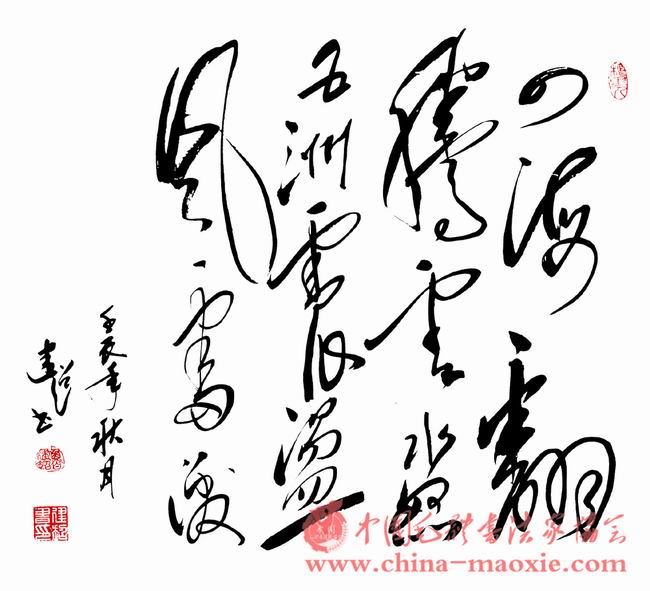 四海翻
騰雲水怒
五洲震盪
風雷激
壬辰年秋月
中国毛体书法家协会
www.china-maoxie.com